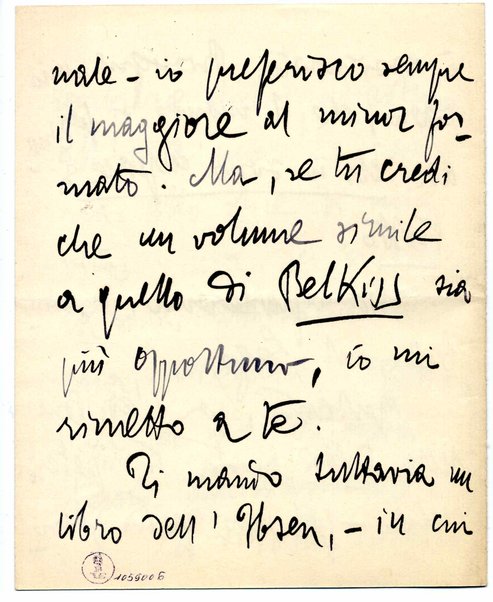 nale – io preferisco sempre
il maggiore al minor for-
mato. Ma, se tu credi
che un volume simile
a quello di BelKiss sia
più opportuno, io mi
rimetto a te.
Ti mando tuttavia un
libro dell' Ibsen, – in cui
105900 6